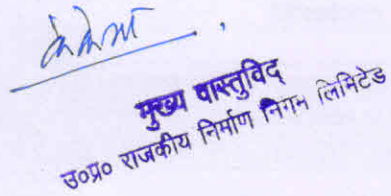 मुख्य वास्तुविद्
उ०प्र० राजकीय निर्माण निगम लिमिटेड